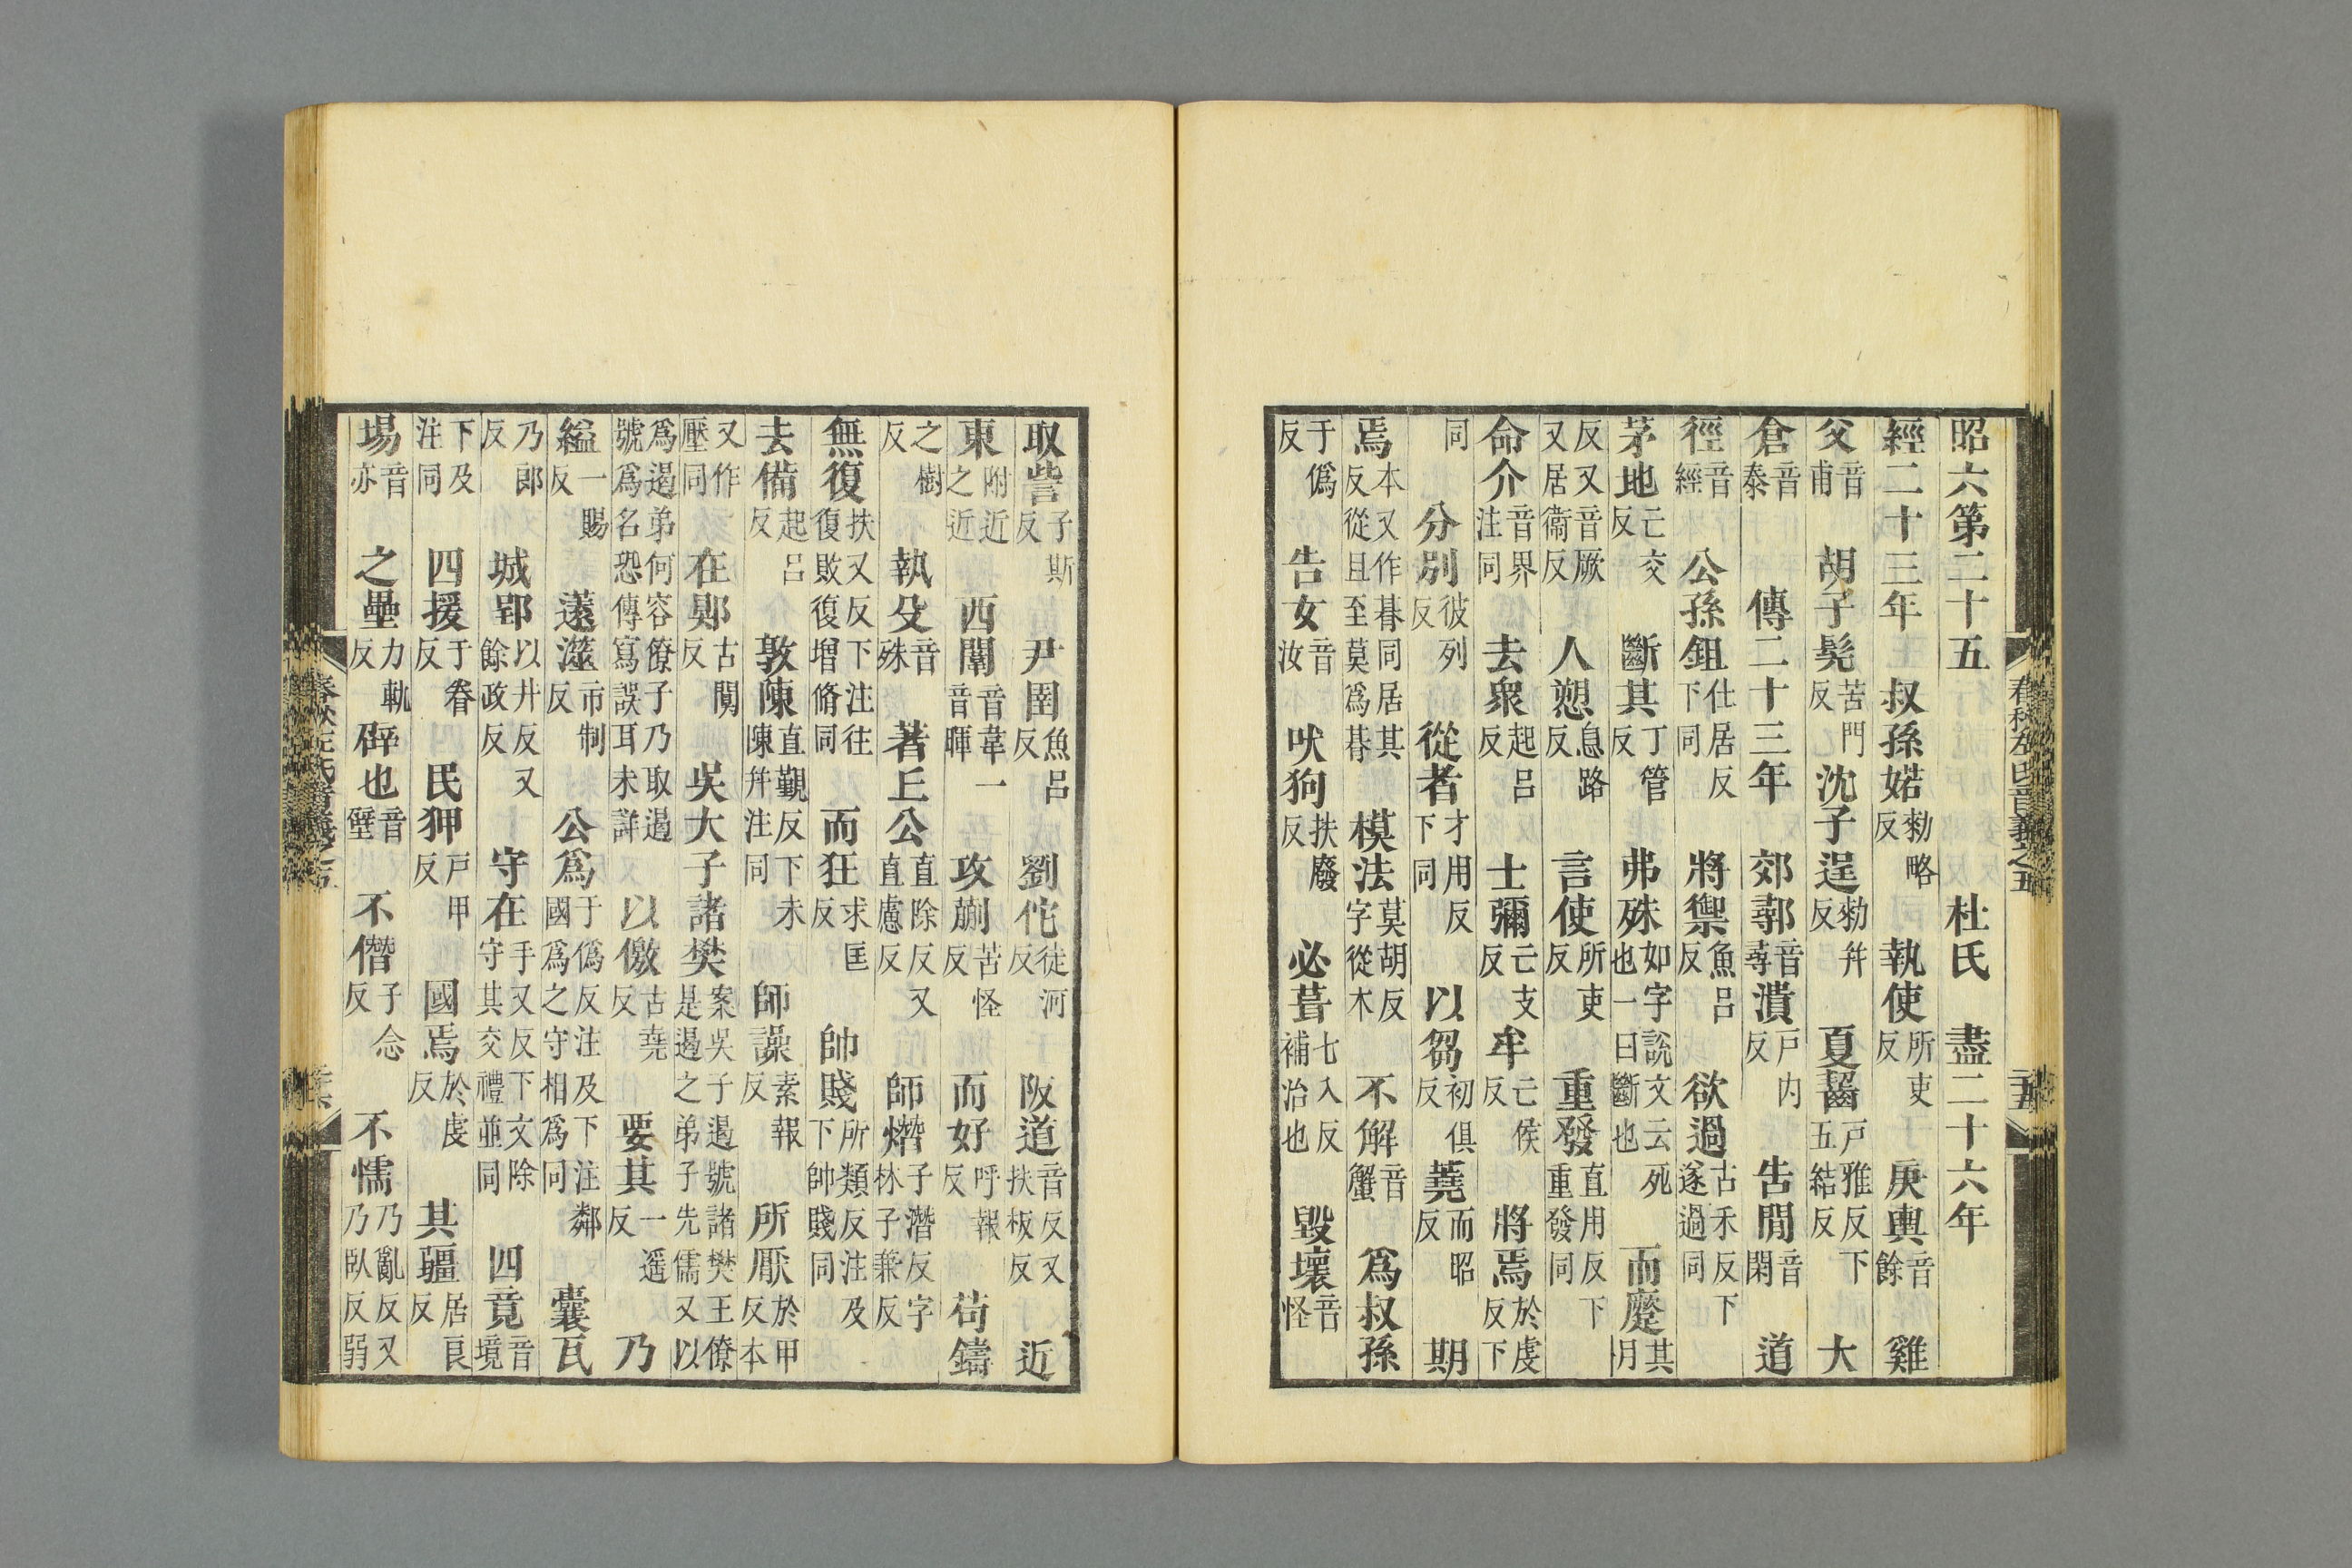 昭六第二十五　杜氏　盡二十六年
經二十三年　叔孫婼勑略反　執使所吏反　庚輿音餘　雞
父音甫　胡子髡苦門反　沈子逞勑井反　夏齧戶雅反下五結反　大
倉音泰　傳二十三年　郊鄩音尋　潰戶内反　告閒音閑　道
徑音經　公孫鉏仕居反下同　將禦魚呂反　欲過古禾反下遂過同
茅地亡交反　斷其丁管反　弗殊如字說文云死也一曰斷也　而蹷其月
反又音厥又居衞反　人愬息路反　言使所吏反　重發直用反下重發同
命介音界注同　去衆起呂反　士彌亡支反　牟亡侯反　將焉於虔反下
同　分別彼列反　從者才用反下同　以芻初俱反　蕘而昭反　期
焉本又作朞同居其反從且至莫爲朞　模法莫胡反字從木　不解音蟹　爲叔孫
于僞反　告女音汝　吠狗扶廢反　必葺七入反補治也　毀壞音怪
春秋左氏音義之五
取訾子斯反　尹圉魚呂反　劉佗徒河反　阪道音反又扶板反　近
東附近之近　西闈音韋一音暉　攻蒯苦怪反　而好呼報反　苟鑄
之樹反　執殳音殊　著丘公直除反又直慮反　師熸子潛反字林子兼反
無復扶又反下注往復敗復增脩同　而狂求匡反　帥賤所類反注及下帥賤同
去備起呂反　敦陳直覲反下未陳并注同　師譟素報反　所厭於甲反本
又作壓同　在郹古闃反　吳大子諸樊案吳子遏號諸樊王僚是遏之弟子先儒又以
爲遏弟何容僚子乃取遏號爲名恐傳寫誤耳未詳　以儌古堯反　要其一遥反　乃
縊一賜反　薳澨市制反　公爲于僞反注及下注鄰國爲之守相爲同　囊瓦
乃郎反　城郢以井反又餘政反　守在手又反下文除守其交禮並同　四竟音境
下及注同　四援于眷反　民狎戶甲反　國焉於虔反　其疆居良反
埸音亦　之壘力軌反　辟也音壁　不僭子念反　不懦乃亂反又乃臥反弱